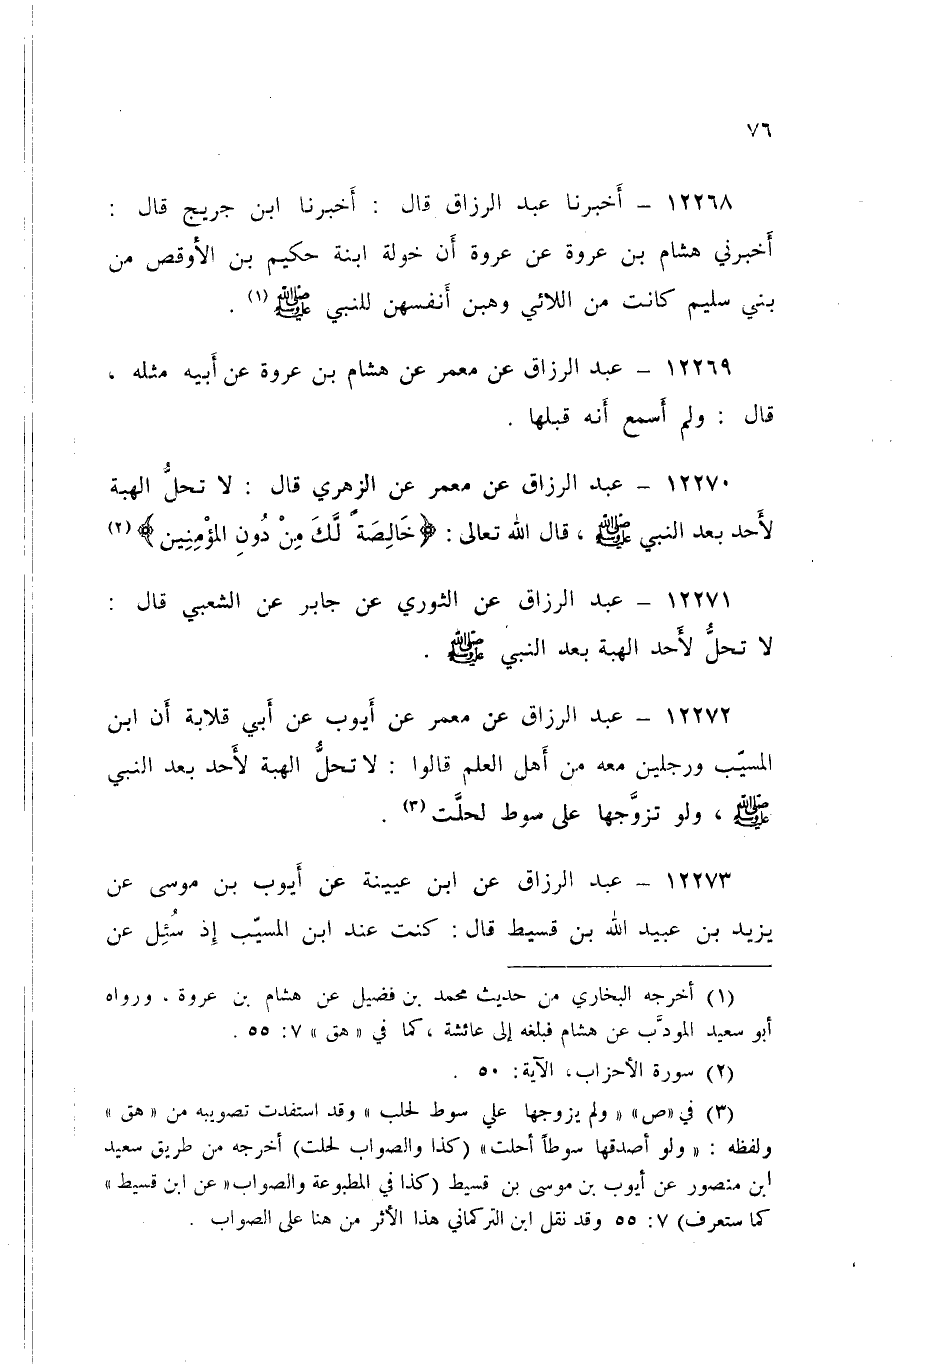 ٧٦
١٢٢٦٨ - أخبرنا عبد الرزاق قال : أخبرنا ابن جريج قال :
أخبرني هشام بن عروة عن عروة أن خولة ابنة حكيم بن الأوقص من
بني سليم كانت من اللائي وهبن أنفسهن للنبي ﷺ (١) .
١٢٢٦٩ - عبد الرزاق عن معمر عن هشام بن عروة عن أبيه مثله ،
قال : ولم أسمع أنه قبلها .
١٢٢٧٠ - عبد الرزاق عن معمر عن الزهري قال : لا تحلُّ الهبة
لأحد بعد النبي ﷺ ، قال الله تعالى : ﴿خَالِصَةً لَّكَ مِنْ دُونِ المُؤْمِنِين﴾ (٢)
١٢٢٧١ - عبد الرزاق عن الثوري عن جابر عن الشعبي قال :
لا تحلُّ لأحد الهبة بعد النبي ﷺ .
١٢٢٧٢ - عبد الرزاق عن معمر عن أيوب عن أبي قلابة أن ابن
المسيّب ورجلين معه من أهل العلم قالوا : لا تحلُّ الهبة لأحد بعد النبي
ﷺ ، ولو تزوَّجها على سوط لحلَّت (٣) .
١٢٢٧٣ - عبد الرزاق عن ابن عيينة عن أيوب بن موسى عن
يزيد بن عبيد الله بن قسيط قال : كنت عند ابن المسيّب إذ سُئِل عن
(١) أخرجه البخاري من حديث محمد بن فضيل عن هشام بن عروة . ورواه
أبو سعيد المودَّب عن هشام فبلغه إلى عائشة ، كما في « هق » ٧: ٥٥ .
(٢) سورة الأحزاب، الآية: ٥٠ .
(٣) في «ص» « ولم يزوجها علي سوط لحلب » وقد استفدت تصويبه من « هق »
ولفظه : « ولو أصدقها سوطاً أحلت» (كذا والصواب لحلت) أخرجه من طريق سعيد
ابن منصور عن أيوب بن موسى بن قسيط (كذا في المطبوعة والصواب« عن ابن قسيط »
كما ستعرف) ٧: ٥٥ وقد نقل ابن التركماني هذا الأثر من هنا على الصواب .